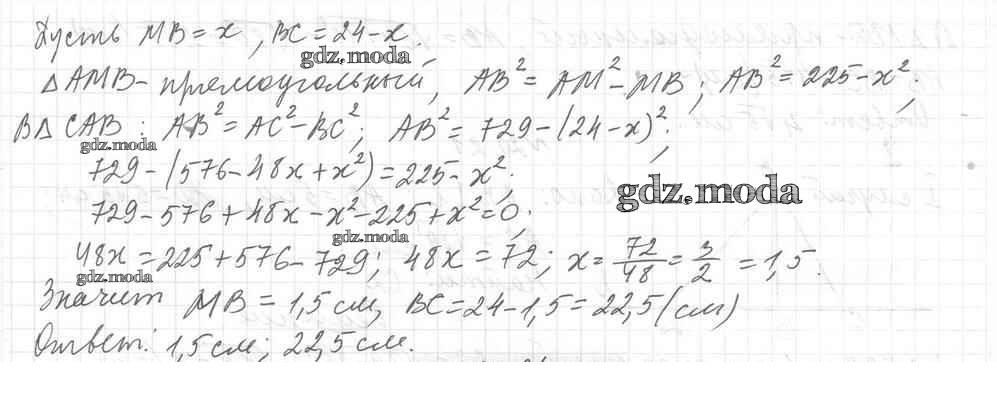 Пусть MB = x, BC = 24-x.
gdz.moda
△AMB - прямоугольный, AB² = AM² - MB; AB² = 225 - x²;
В△CAB: AB² = AC² - BC²; AB² = 729 - (24-x)²;
gdz.moda
729 - (576 - 48x + x²) = 225 - x²;
gdz.moda
729 - 576 + 48x - x² - 225 + x² = 0;
gdz.moda
48x = 225 + 576 - 729; 48x = 72; x = 72/48 = 3/2 = 1,5.
gdz.moda
Значит MB = 1,5 см, BC = 24 - 1,5 = 22,5 (см)
Ответ: 1,5 см; 22,5 см.